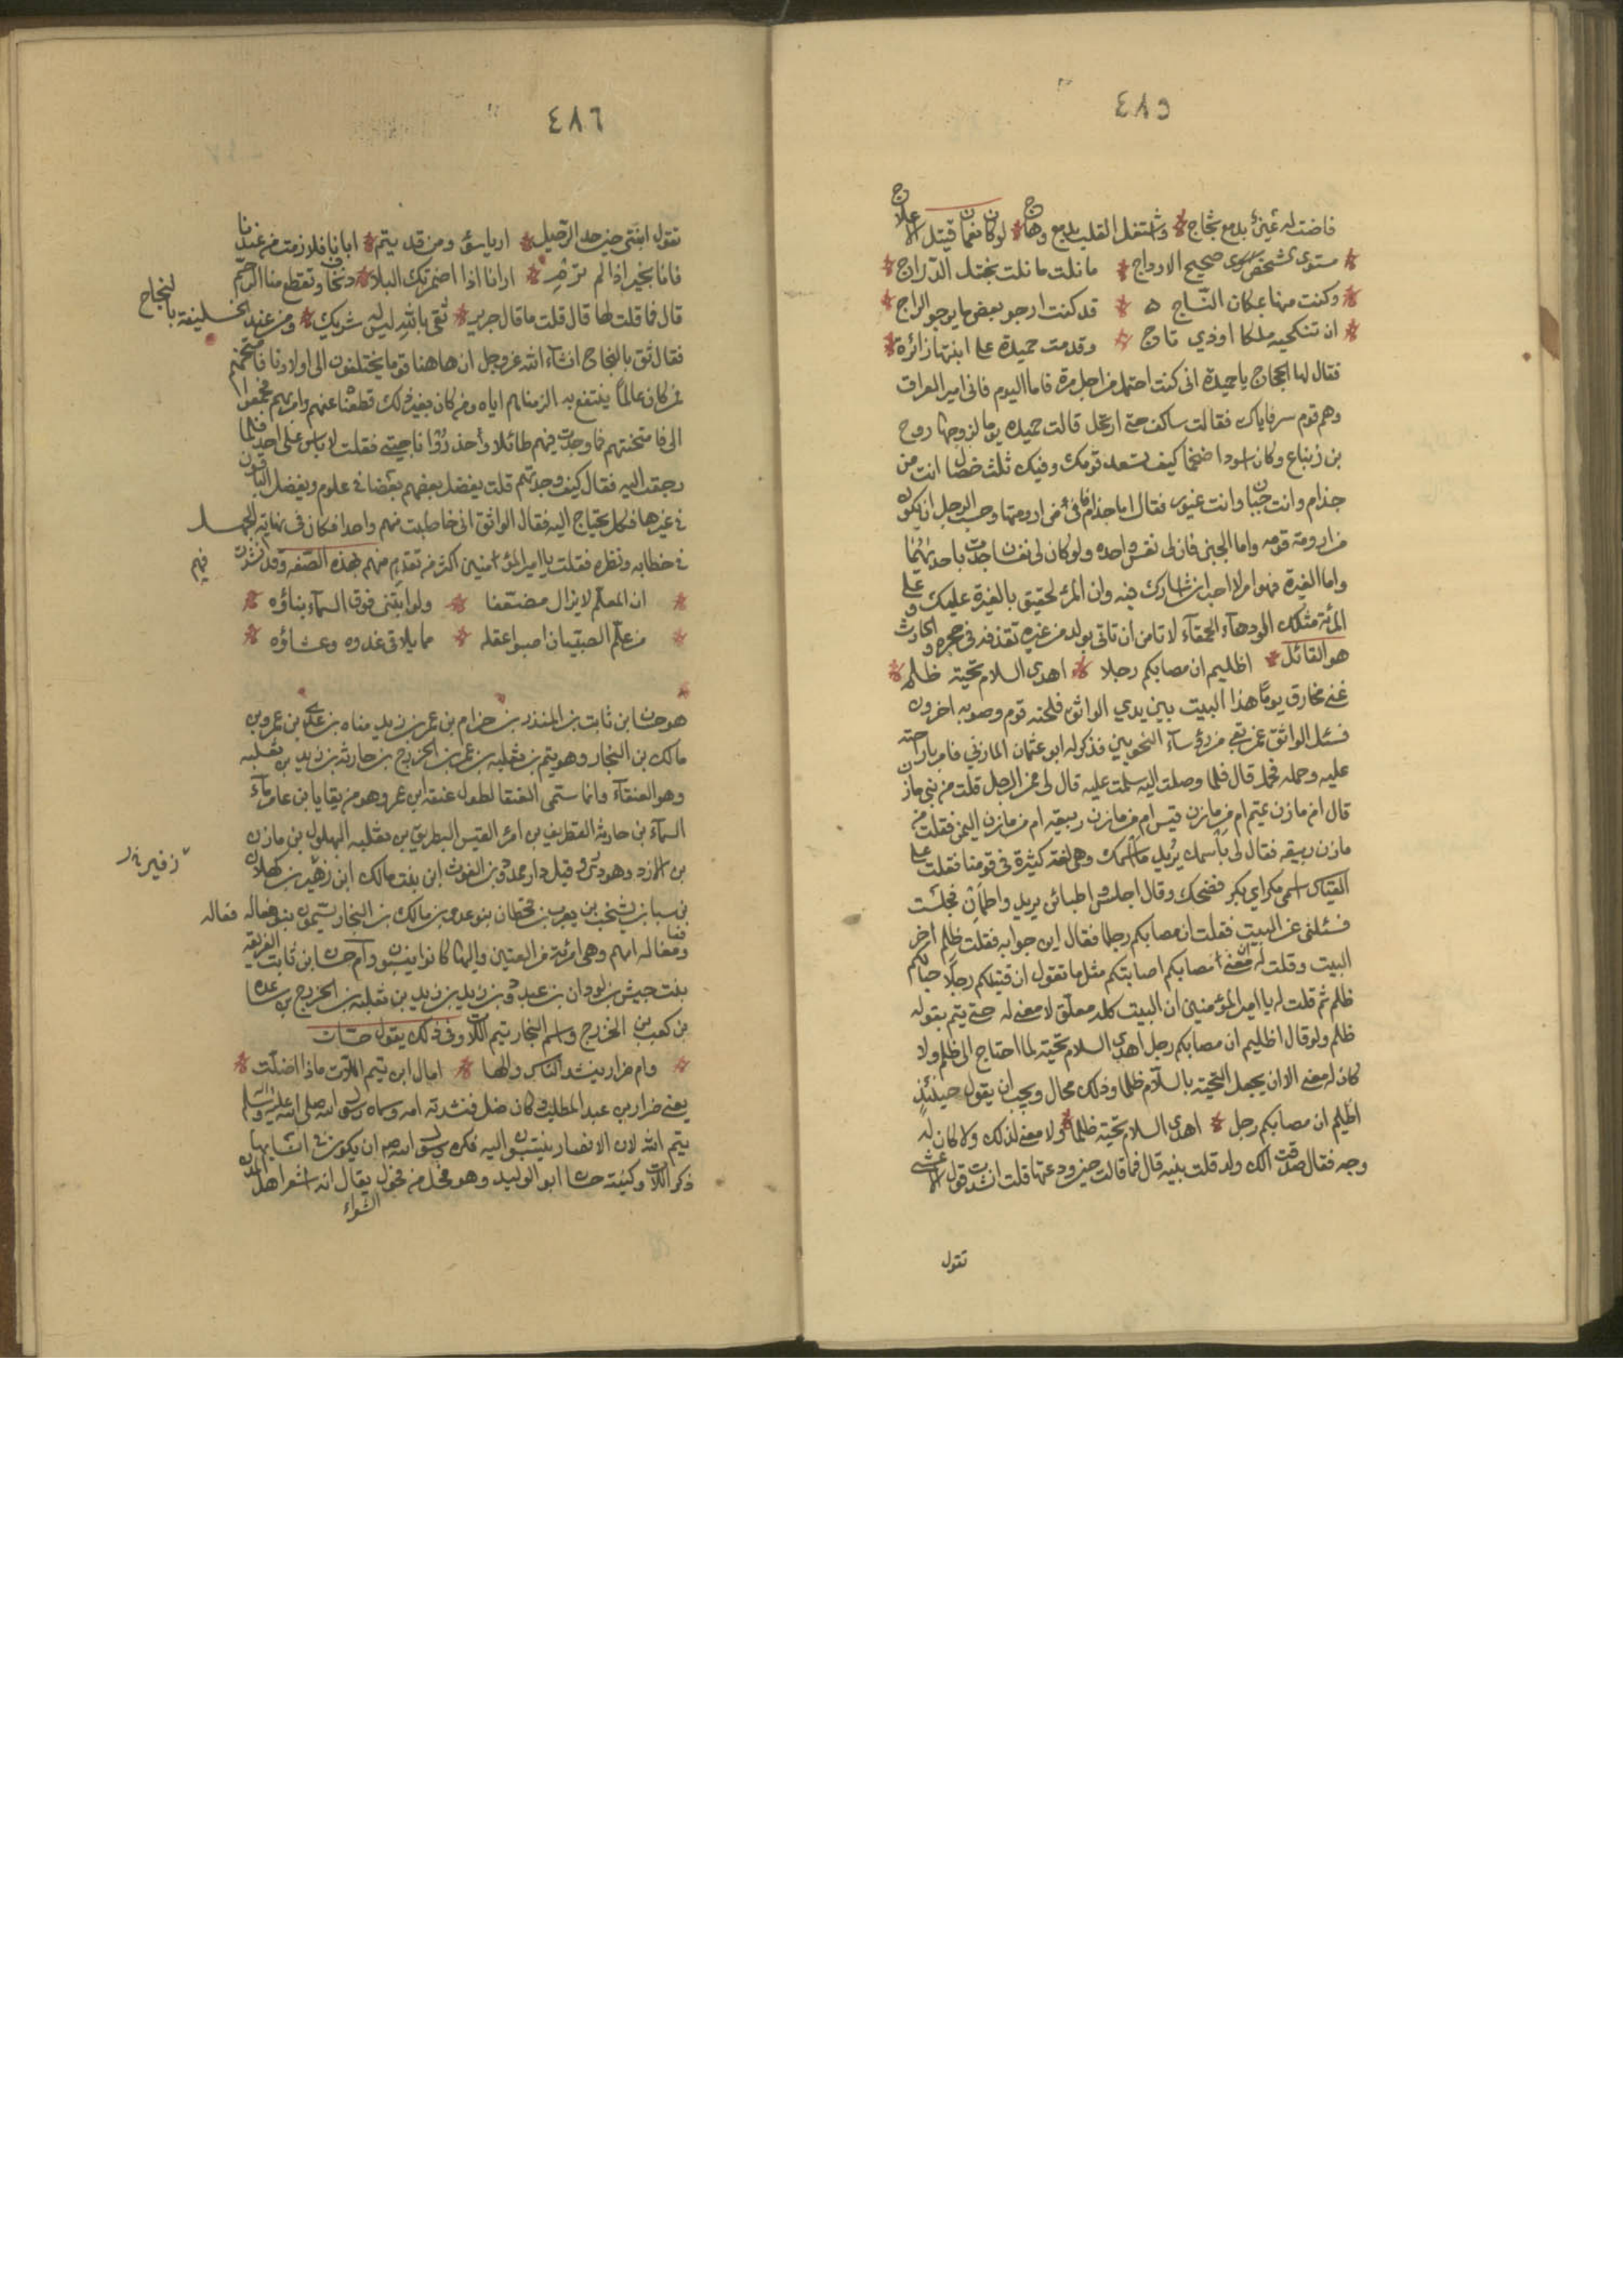 ٤٨٥
فاضت له عينى بدمع ثجاج * واشتغل القلب بدمع وهاج * لوكان نعمان قتيل الاعلاج
* مستوى الشخص سوى صحيح الاوداج * ما نلت ما نلت بختل الدراج *
* وكنت منها بمكان النتاج ه * قد كنت ارجو بعض ما يرجو الراج *
* ان تنكحيه ملكا اوذي تاج * وقدمت حميدة على ابنتها زائرة *
فقال لها الحجاج يا حميدة انى كنت احتمل مزاحك مرة فاما اليوم فانى امير العراق
وهم قوم سو فاياك فقالت ساكف حتى ارتحل قالت حميدة يوما لزوجها روح
بن زنباع وكان اسودا ضخما كيف تسعد قومك وفيك ثلث خصال انت من
جذام وانت جبان وانت غيور فقال اما جذام فانى من ارومتها وحسب الرجل ان يكون
من ارومة قومه واما الجبن فان لى نفس واحده ولو كان لى نفسان لجدت باحديهما
واما الغيرة فهو امر لا احب ان اشارك فيه وان المرء لحقيق بالغيرة على
المرئة مثلك الحمقاء لا تامن ان تاتى بولد من غيره تقذفه فى حجره والحارث
هو القائل * اظليم ان مصابكم رجلا * اهدى السلام تحية ظلم *
غنى مخارق يوما هذا البيت بين يدي الواثق فلحنه قوم وصوبه اخرون
فسئل الواثق عمن بقى من رؤسآء النحويين فذكر له ابو عثمان المازني فامر بازاحته
عليه وحمله فحمل قال فلما وصلت اليه سلمت عليه قال لى ممن الرجل قلت من بنى مازن
قال امن مازن تميم ام من مازن قيس ام من مازن ربيعه ام من مازن اليمن فقلت من
مازن ربيعه فقال لى باسمك يريد ما اسمك وهى لغة كثيرة فى قومنا فقلت على
القياس اسمى مكر اي بكر فضحك وقال اجلس واطبئن يريد واطمئن فجلست
فسئلنى عن البيت فقلت ان مصابكم رجلا فقال اين جوابه فقلت ظلم اخر
البيت وقلت له معنى ان مصابكم اصابتكم مثل ما تقول ان قتلكم رجلا حياكم
ظلم ثم قلت له يا امير المؤمنين ان البيت كله معلق لا معنى له حتى يتم بقوله
ظلم ولو قال اظليم ان مصابكم رجل اهدى السلام تحية لما احتاج الى ظلم ولا
كان له معنى الا ان يجعل التحية بالسلام ظلما وذلك محال ويجب ان يقول حينئذ
اظليم ان مصابكم رجل * اهدى السلام تحية ظلما * ولا معنى لذلك ولا كان له
وجه فقال صدقت الك ولد قلت بنيه قال فما قالت حين ودعتها قلت انشدت قول الاعشى
تقول
٤٨٦
تقول ابنتى حين جد الرحيل * ارانا سواء ومن قد يتم * ابانا فلا رمت من عندنا
فانا بخير اذا لم ترم * ارانا اذا اضمرتك البلاد * ونجفا وتقطع منا الرحم
قال فما قلت لها قال قلت ما قال جرير * ثقى بالله ليس له شريك * ومن عند الخليفة بالنجاح
فقال ثق بالنجاح انشآء الله عز وجل ان هاهنا قوما يختلفون الى اولادنا فامتحنهم
فمن كان عالما ينتفع به الزمناهم اياه ومن كان بغير ذلك قطعناه عنهم وامر بهم فجمعوا
الى فامتحنتهم فما وجدت فيهم طائلا وحذروا ناحيتى فقلت لا باس على احد فلما
رجعت اليه فقال كيف وجدتهم قلت يفضل بعضهم بعضا فى علوم ويفضل الباقون
فى غيرها فكل يحتاج اليه فقال الواثق انى خاطبت منهم واحدا فكان فى نهاية الجهل
فى خطابه ونظره فقلت يا امير المؤمنين اكثر من تقدم منهم لهذه الصفه وقد انشدت فيهم
* ان المعلم لا يزال مضعفا * ولو ابتنى فوق السمآء بناؤه *
* من علم الصبيان اصبوا عقله * مما يلاقى غدوه وعشاؤه *
هو حسان ابن ثابت بن المنذر بن حزام بن عمر بن زيد مناه بن عدى بن عمرو بن
مالك بن النجار وهو تيم بن ثعلبه بن عمر بن الخزرج بن حارثه بن زيد بن ثعلبه
وهو العنقآء وانما ستمى العنقا لطول عنقه ابن عمرو وهو مزيقايا بن عامر مآء
السمآء بن حارثه الغطريف بن امرء القيس البطريق بن ثعلبه البهلول بن مازن
بن الازد وهو ذرى وقيل درا ممدود بن الغوث ابن بنت مالك ابن زهير بن كهلان
بن سبا بن يشخب بن يعرب بن قحطان بنو عدى بن مالك بن النجار يسمون بنو مغاله فغاله
ومغاله امهم وهى امرئة من القين واليها كانوا ينسبون وام حسان ابن ثابت الفريعه
بنت حبيش بن لوذان بن عبد ود بن زيد بن ثعلبه بن الخزرج بن ساعده
بن كعب بن الخزرج واسم النجار تيم اللات وفى ذلك يقول حسان
* وام ضرار ينشد الناس والها * امال ابن تيم اللات ماذا اضلت *
يعنى ضرار بن عبد المطلب وكان ضل فنشدته امه وسماه رسول الله صلى الله عليه وسلم
تيم الله لان الانصار ينتسبون اليه فكره رسول الله ان يكون فى انسابها
ذكر اللات وكنيته حسان ابو الوليد وهو فحل من فحول يقال انه اشعر اهل المدن
الشعراء